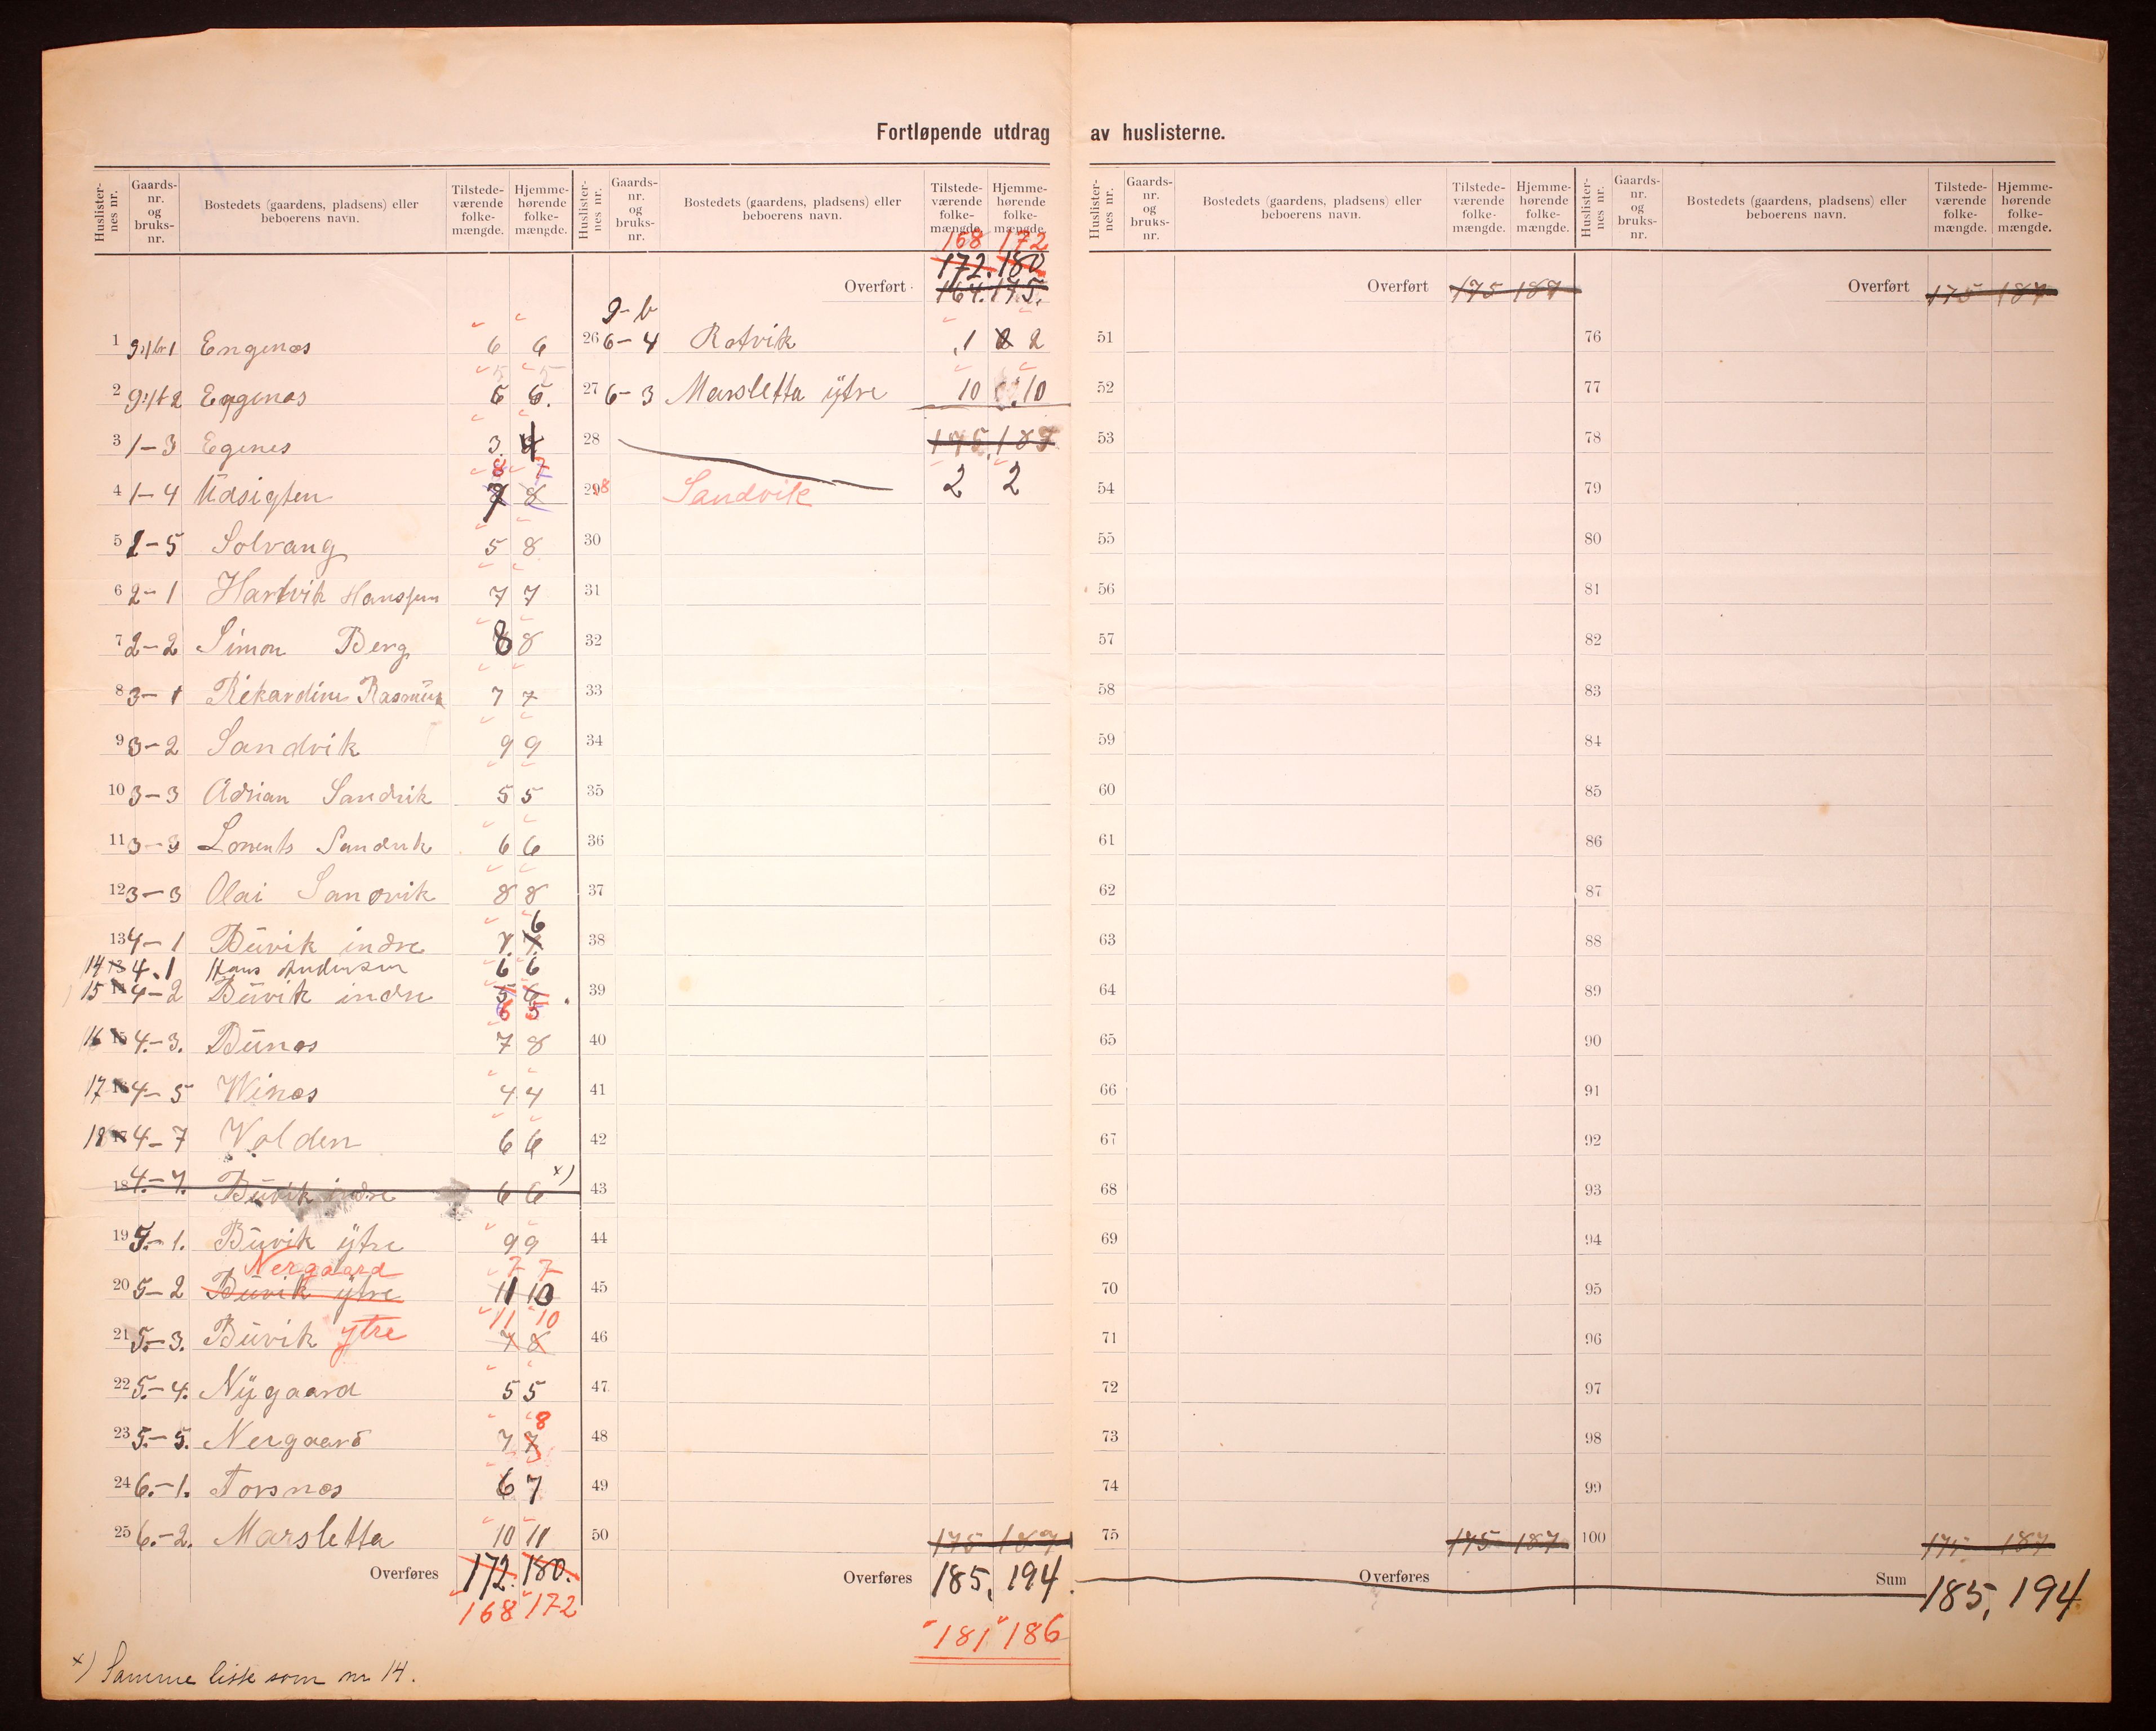 Fortløpende utdrag av huslisterne.
Huslister-nes nr. Gaards-nr. og bruks-nr. Bostedets (gaardens, pladsens) eller beboerens navn. Tilstede-værende folke-mængde. Hjemme-hørende folke-mængde.
1 g.1 br 1 Engenæs 6 6
2 Engenæs
3 1-3 Egenes 3. 4
4 1-4 Udsigten 7 8 8 7
5 1-5 Solvang 5 8
6 2-1 Hartvik Hanssen 7 7
7 2-2 Simon Berg 8 8
8 3-1 Rikardine 7 7
9 3-2 Sandvik 9 9
10 3-3 Adrian Sandvik 5 5
11 3-3 Lorents Sandvik 6 6
12 3-3 Olai Sandvik 8 8
13 4-1 Buvik indre 7. 6
14 13 4.1 Hans Andersen 6 6
15 14 4-2 Buvik indre 5 6
16 15 4.-3. Bunæs 7 8
17 16 4-5 Winæs 4 4
18 17 4-7 Volden 6 6
18 4.-7. Buvik indre 6 6 x)
19 5.-1. Buvik ytre 9 9
Nergaard 7 7
20 5-2 Buvik ytre 11 10
11 10
21 5.-3. Buvik ytre 7 8
22 5.-4. Nygaard 5 5
8
23 5.-5. Nergaard 7 7
24 6.-1. Torsnæs 6 7
25 6.-2. Marsletta 10 11
Overføres 172. 180.
168 172
x) Samme liste som nr 14.
Huslister-nes nr. Gaards-nr. og bruks-nr. Bostedets (gaardens, pladsens) eller beboerens navn. Tilstede-værende folke-mængde. Hjemme-hørende folke-mængde.
168 172
172. 180
Overført 164. 175.
g-b
26 6-4 Rotvik 1 2
27 6-3 Marsletta ytre 10 10
28 175. 187
29 28 Sandvik 2 2
30
31
32
33
34
35
36
37
38
39
40
41
42
43
44
45
46
47
48
49
50 175 187
Overføres 185, 194.
181 186
Huslister-nes nr. Gaards-nr. og bruks-nr. Bostedets (gaardens, pladsens) eller beboerens navn. Tilstede-værende folke-mængde. Hjemme-hørende folke-mængde.
Overført 175 187
51
52
53
54
55
56
57
58
59
60
61
62
63
64
65
66
67
68
69
70
71
72
73
74
75 175 187
Overføres
Huslister-nes nr. Gaards-nr. og bruks-nr. Bostedets (gaardens, pladsens) eller beboerens navn. Tilstede-værende folke-mængde. Hjemme-hørende folke-mængde.
Overført 175 187
76
77
78
79
80
81
82
83
84
85
86
87
88
89
90
91
92
93
94
95
96
97
98
99
100 175 187
Sum 185, 194